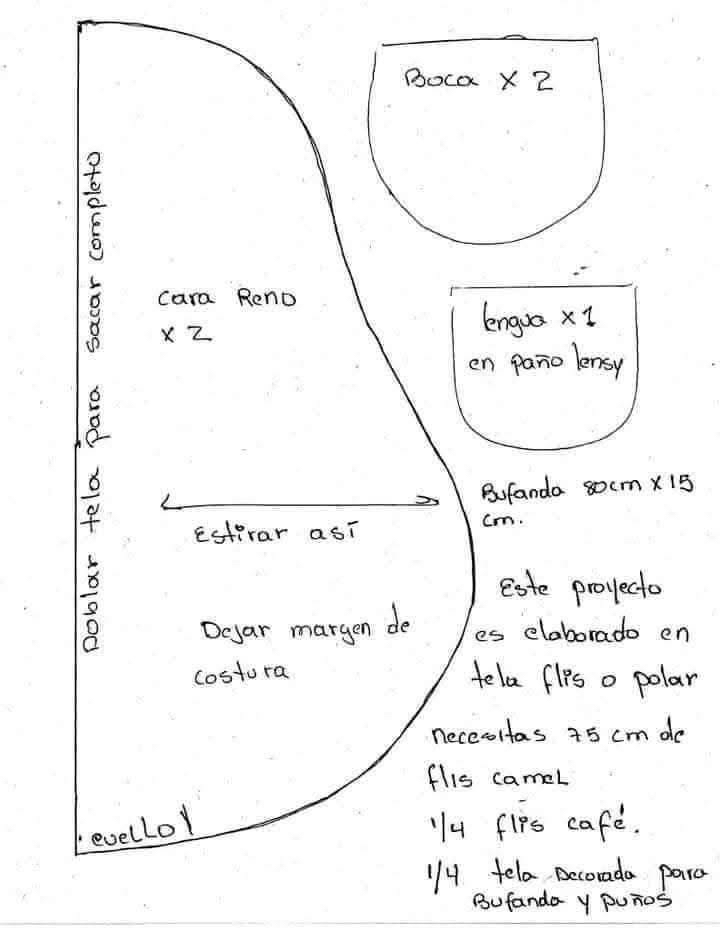 Doblar tela para sacar completo
cara Reno
x 2
Estirar así
Dejar margen de
costura
cuello
Boca x 2
lengua x 1
en paño lensy
Bufanda 80cm x 15
cm.
Este proyecto
es elaborado en
tela flis o polar
necesitas 75 cm de
flis camel
1/4 flis café.
1/4 tela Decorada para
Bufanda y puños